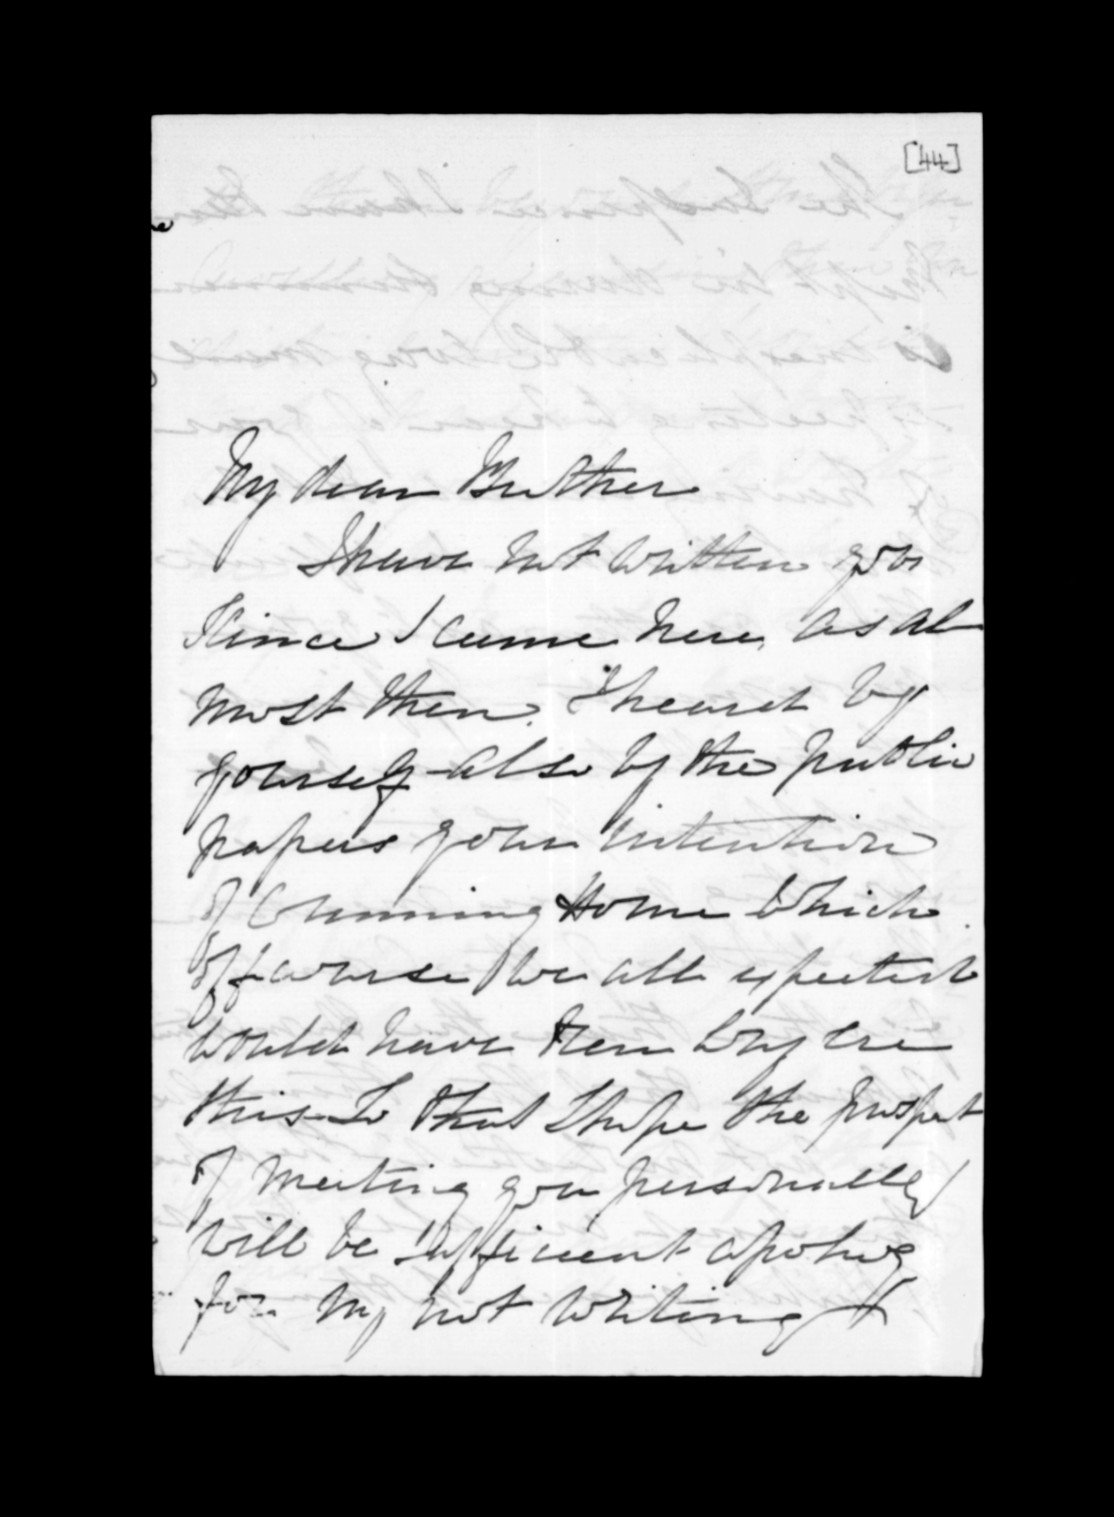 [44]
My dear Brother
I have not written you
Since I came here, as al
most then I heard by
yourself also by the public
papers your intention
of Comming Home which
of course we all expected
would have been long ere
this. So that I hope the prospect
of meeting you personally
will be sufficient apology
for my not writing